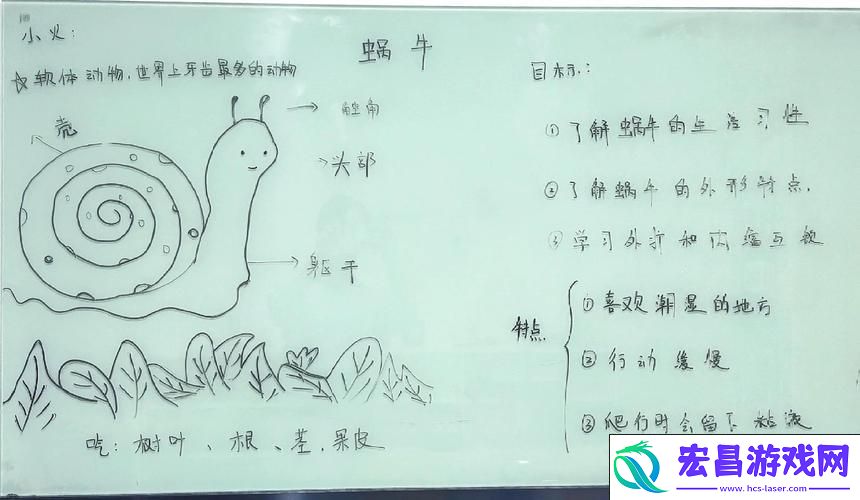 小火:
蜗牛
☆软体动物,世界上牙齿最多的动物
壳
触角
头部
躯干
吃:树叶、根、茎,果皮
目标:
①了解蜗牛的生活习性
②了解蜗牛的外形特点.
③学习外折和内缩互
特点
①喜欢潮湿的地方
②行动缓慢
③爬行时会留下粘液
宏昌游戏网
www.hcs-laser.com